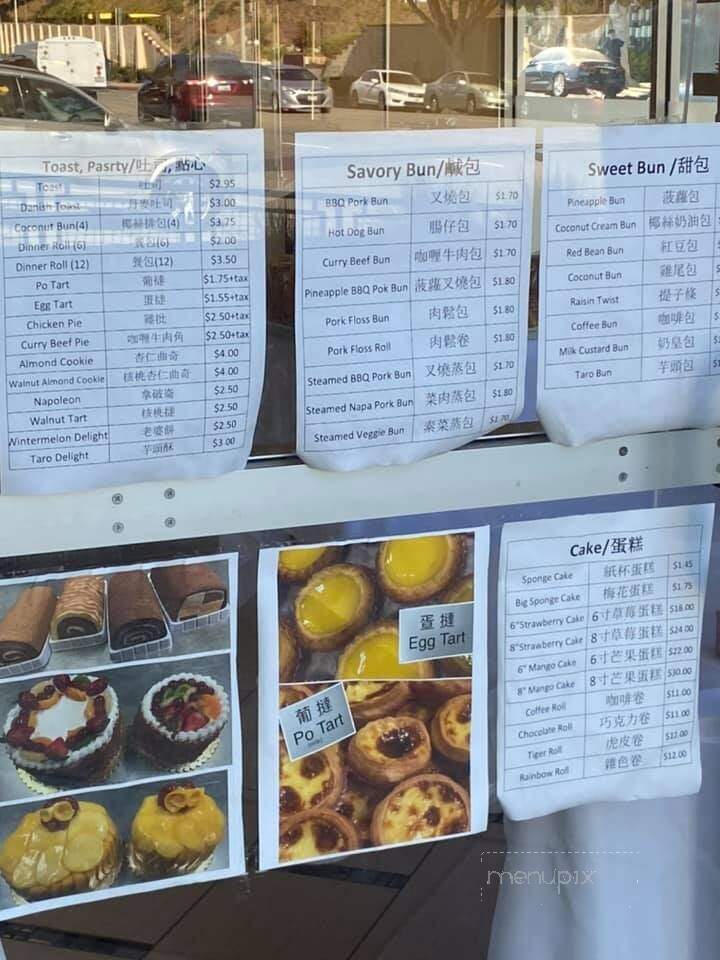 Toast, Pasrty/吐司, 點心
Toast 吐司 $2.95
Danish Toast 丹麥吐司 $3.00
Coconut Bun(4) 椰絲排包(4) $3.75
Dinner Roll (6) 餐包(6) $2.00
Dinner Roll (12) 餐包(12) $3.50
Po Tart 葡撻 $1.75+tax
Egg Tart 蛋撻 $1.55+tax
Chicken Pie 雞批 $2.50+tax
Curry Beef Pie 咖喱牛肉角 $2.50+tax
Almond Cookie 杏仁曲奇 $4.00
Walnut Almond Cookie 核桃杏仁曲奇 $4.00
Napoleon 拿破崙 $2.50
Walnut Tart 核桃撻 $2.50
Wintermelon Delight 老婆餅 $2.50
Taro Delight 芋頭酥 $3.00
Savory Bun/鹹包
BBQ Pork Bun 叉燒包 $1.70
Hot Dog Bun 腸仔包 $1.70
Curry Beef Bun 咖喱牛肉包 $1.70
Pineapple BBQ Pok Bun 菠蘿叉燒包 $1.80
Pork Floss Bun 肉鬆包 $1.80
Pork Floss Roll 肉鬆卷 $1.80
Steamed BBQ Pork Bun 叉燒蒸包 $1.70
Steamed Napa Pork Bun 菜肉蒸包 $1.80
Steamed Veggie Bun 素菜蒸包 $1.70
Sweet Bun /甜包
Pineapple Bun 菠蘿包
Coconut Cream Bun 椰絲奶油包 $
Red Bean Bun 紅豆包 $
Coconut Bun 雞尾包 $
Raisin Twist 提子條 $
Coffee Bun 咖啡包 $
Milk Custard Bun 奶皇包 $
Taro Bun 芋頭包
蛋撻
Egg Tart
葡撻
Po Tart
Cake/蛋糕
Sponge Cake 紙杯蛋糕 $1.45
Big Sponge Cake 梅花蛋糕 $1.75
6"Strawberry Cake 6寸草莓蛋糕 $18.00
8"Strawberry Cake 8寸草莓蛋糕 $24.00
6" Mango Cake 6寸芒果蛋糕 $22.00
8" Mango Cake 8寸芒果蛋糕 $30.00
Coffee Roll 咖啡卷 $11.00
Chocolate Roll 巧克力卷 $11.00
Tiger Roll 虎皮卷 $12.00
Rainbow Roll 雜色卷 $12.00
menupix